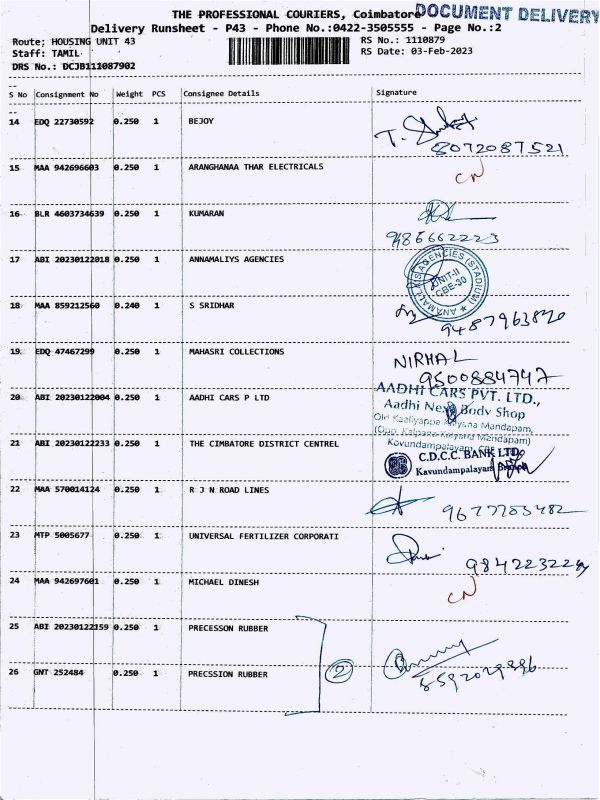 THE PROFESSIONAL COURIERS, Coimbatore DOCUMENT DELIVERY
Delivery Runsheet - P43 - Phone No.:0422-3505555 - Page No.:2
Route; HOUSING UNIT 43 RS No.: 1110879
Staff: TAMIL RS Date: 03-Feb-2023
DRS No.: DCJB111087902
S No Consignment No Weight PCS Consignee Details Signature
14 EDQ 22730592 0.250 1 BEJOY
8072087521
15 MAA 942696603 0.250 1 ARANGHANAA THAR ELECTRICALS CN
16 BLR 4603734639 0.250 1 KUMARAN
9486662223
17 ABI 20230122018 0.250 1 ANNAMALIYS AGENCIES
UNIT-II
CBE-30
18 MAA 859212560 0.240 1 S SRIDHAR
19 EDQ 47467299 0.250 1 MAHASRI COLLECTIONS NIRMAL
9500884747
20 ABI 20230122004 0.250 1 AADHI CARS P LTD AADHI CARS PVT. LTD.,
Aadhi Nexa Body Shop
Mandapam,
Kovundampalayam,
21 ABI 20230122233 0.250 1 THE CIMBATORE DISTRICT CENTREL C.D.C.C. BANK LTD.
Kavundampalayam Branch
22 MAA 570014124 0.250 1 R J N ROAD LINES
23 MTP 5005677 0.250 1 UNIVERSAL FERTILIZER CORPORATI
24 MAA 942697601 0.250 1 MICHAEL DINESH CN
25 ABI 20230122159 0.250 1 PRECESSON RUBBER
26 GNT 252484 0.250 1 PRECSSION RUBBER 2